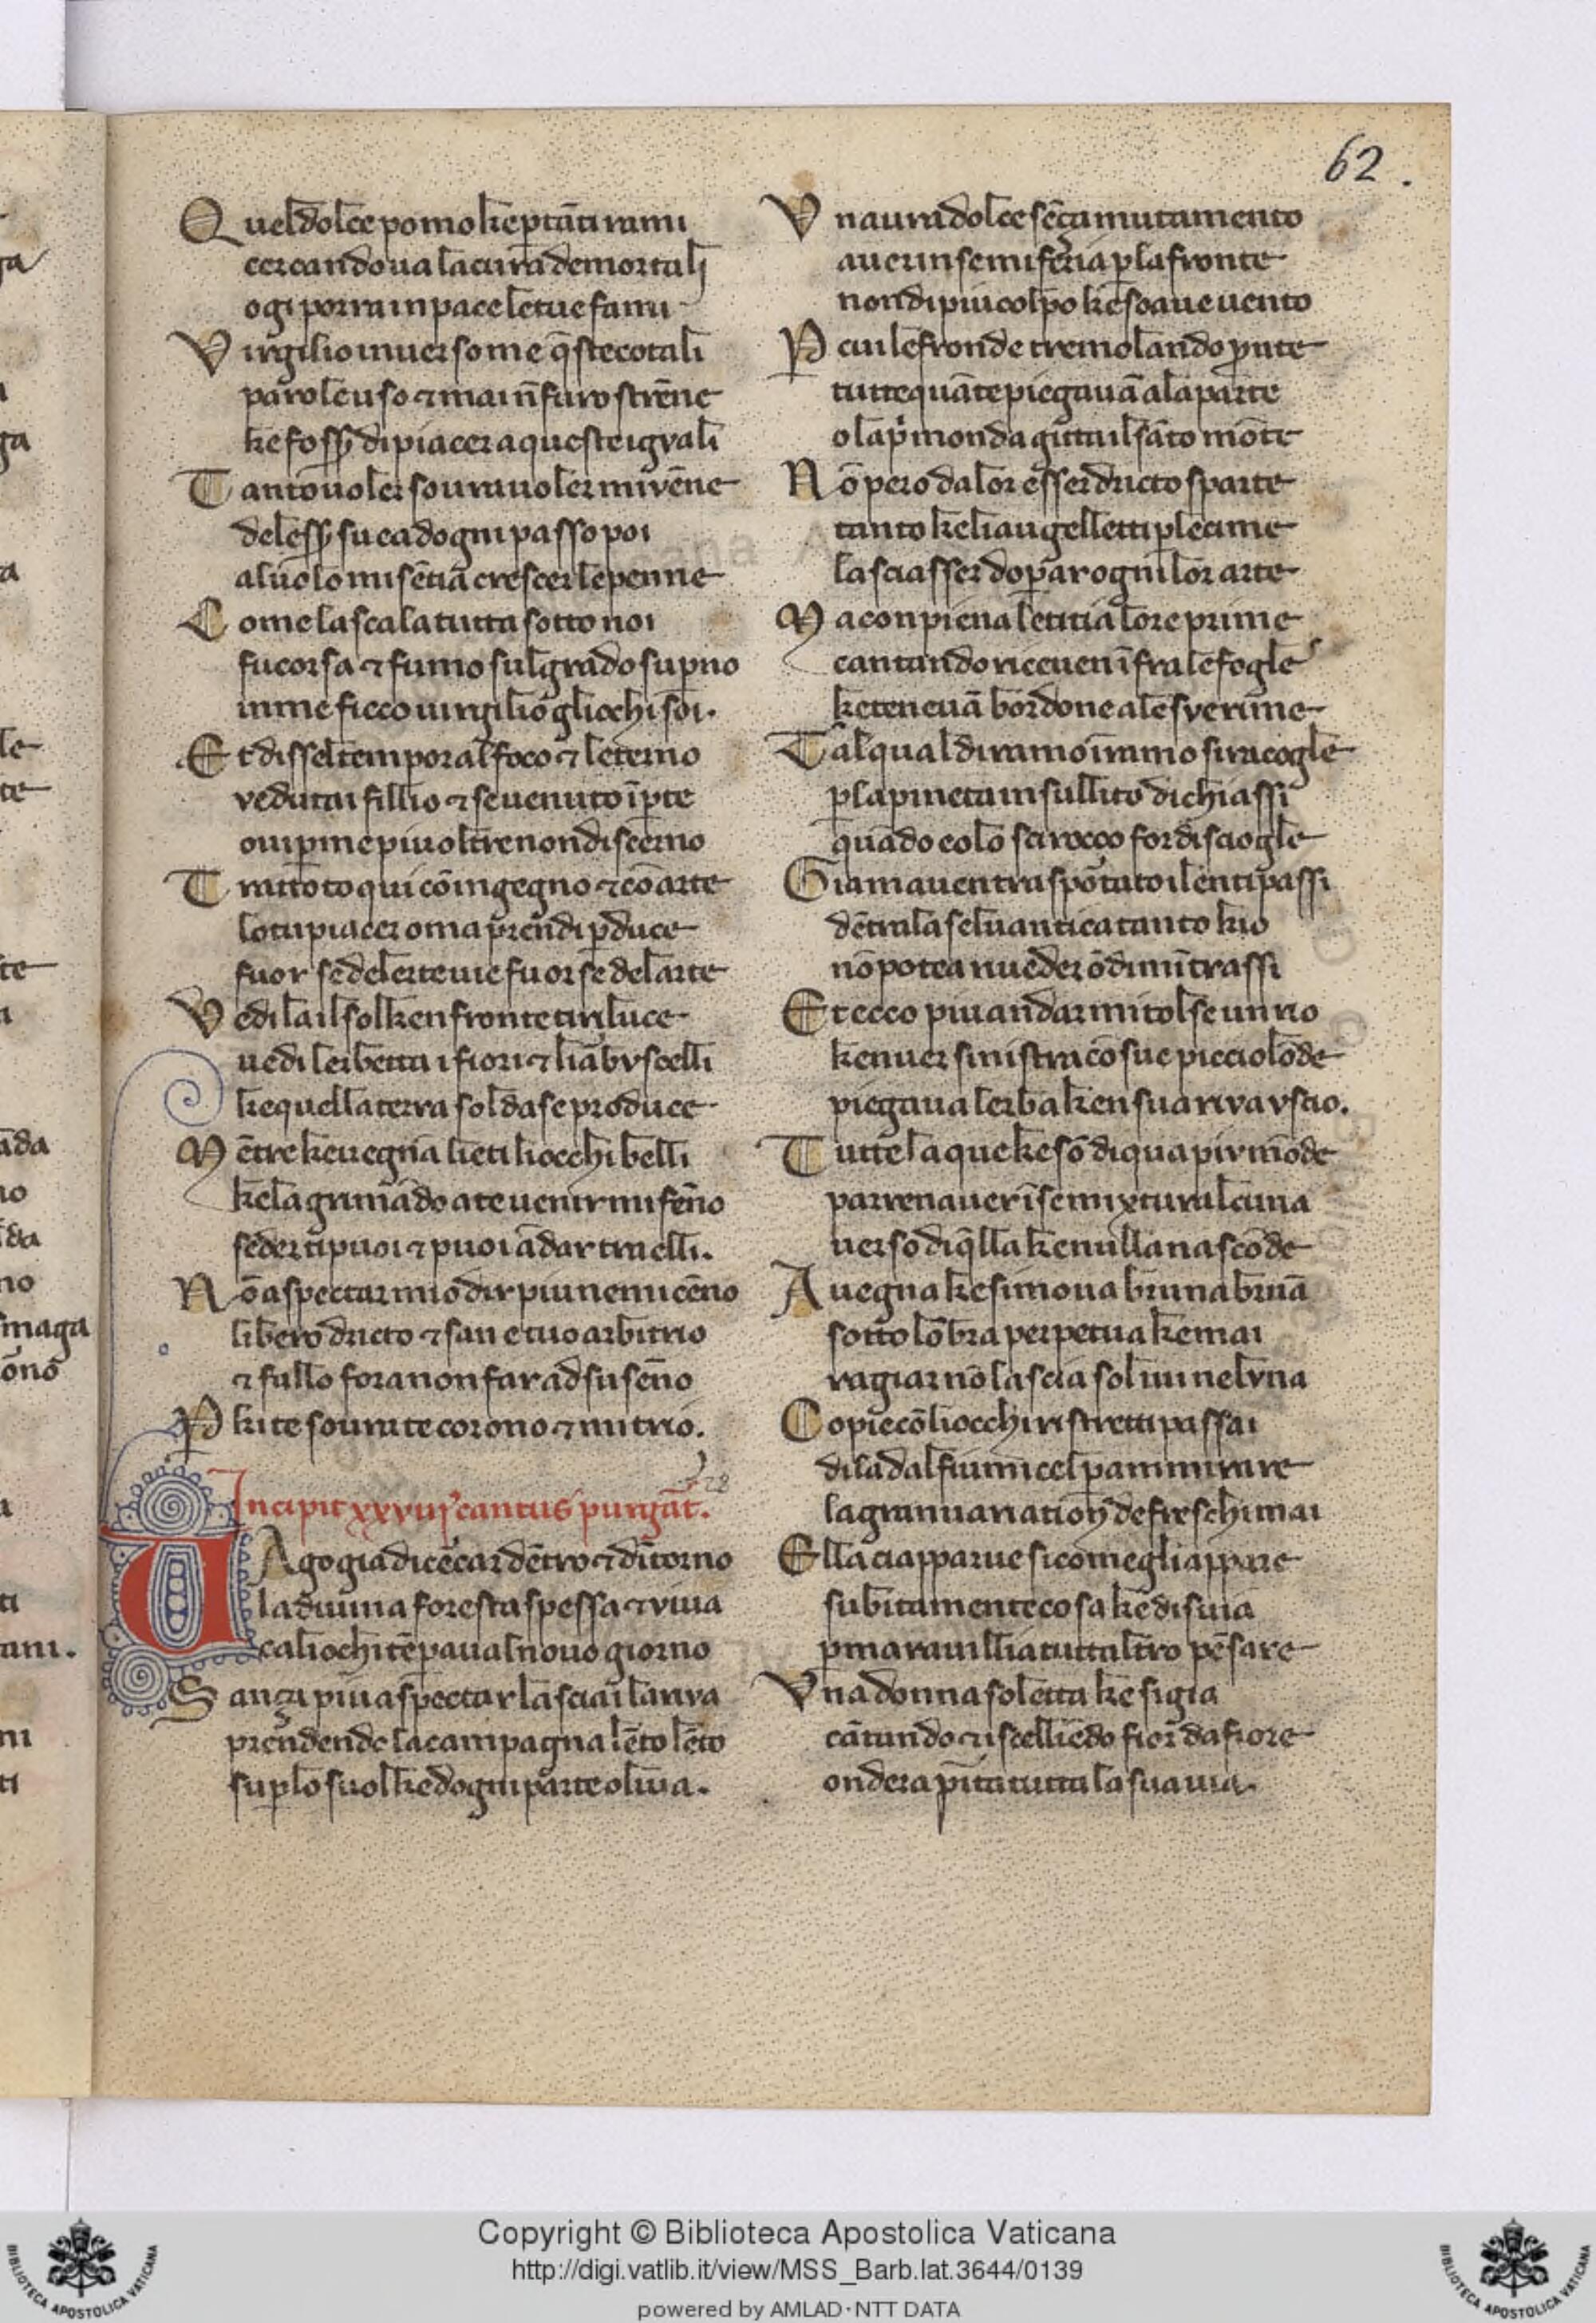 62.
Quel dolce pomo ke ꝑ tāti rami
cercando ua la cura de mortali
ogi porra in pace le tue fami
Virgilio inuerso me q̄ste cotali
parole uso ⁊ mai n̄ furo strēne
ke foss̄ di piacer a queste igvali
Tanto uoler soura uoler mi vēne
del ess̄ su ca dogni passo poi
al uolo mi sētia crescer le penne
Come la scala tutta sotto noi
fu corsa ⁊ fumo sul grado supno
in me ficco uirgilio gli ochi soi.
Et disse l temporal foco ⁊ leterno
veduta i fillio ⁊ se uenuto ī ꝑte
oui ꝑ me piu oltre non discerno
Tratto to qui cō ingegno ⁊ cō arte
lo tu piacer oma prendi ꝑ duce
fuor se del erte uie fuor se del arte
Vedi la il sol ken fronte ti riluce
uedi lerbetta i fiori ⁊ li ābvscelli
ke quella terra sol da se produce
Mētre ke uegna lieti li occhi belli
ke lagrimādo a te uenir mi fēno
seder ti puoi ⁊ puoi ādar tra elli.
Nō aspectar mio dir piu ne mi cēno
libero dricto ⁊ san e tuo arbitrio
⁊ fallo fora non far ad su sēno
P kite soura te corono ⁊ mitrio.
28
Incipit xxviij cantus purgat̄.
VAgo gia di cēcar dētro ⁊ dītorno
la diuina foresta spessa ⁊ viua
ca li ochi tēpaua l nouo giorno
Sança piu aspectar lasciai la riva
prendendo la campagna lēto lēto
su ꝑ lo suol ke dogni parte oliua.
Vna aura dolce sēça mutamento
auer in se mi feria ꝑ la fronte
non di piu colpo ke soaue uento
P cui le fronde tremolando pnte
tutte quāte piegauā a la parte
o la pⁱmonda gitta il sāto mōte
Nō pero da lor esser dricto sparte
tanto ke li augelletti ꝑ le cime
lasciasser doꝑar ogni lor arte
Ma con piena letitia lore prime
cantando riceuen ī fra le fogle
ke teneuā bordone a le sve rime
Tal qual di ramo ī ramo si racogle
ꝑ la pineta in sul lito di chiassi
quādo eolo scirocco for disciogle
Gia mauen traspotato i lenti passi
dētra la selua antica tanto kio
nō potea riueder ōdi mītrassi
Et ecco piu andar mi tolse un rio
ken uer sinistra cō sue picciol ōde
piegaua lerba ken sua riva vscio.
Tutte laque ke sō di qua piv mōde
parren auer ī se mixtura alcuna
uerso di q̄lla ke nulla nascōde
Auegna ke si moua bruna bruā
sotto lōbra perpetua ke mai
ragiar nō lascia sol iui ne lvna
Co pie cō li occhi ristretti passai
di la dal fiumicel ꝑ ammirare
la gran uariation̄ de freschi mai
Ella ciapparue si come gli appare
subitamente cosa ke disuia
p marauillia tuttaltro pēsare
Vna donna soletta ke si gia
cātando ⁊ iscelliēdo fior da fiore
ondera pīta tutta la sua uia.
Copyright © Biblioteca Apostolica Vaticana
http://digi.vatlib.it/view/MSS_Barb.lat.3644/0139
powered by AMLAD·NTT DATA
BIBLIOTECA APOSTOLICA VATICANA
BIBLIOTECA APOSTOLICA VATICANA